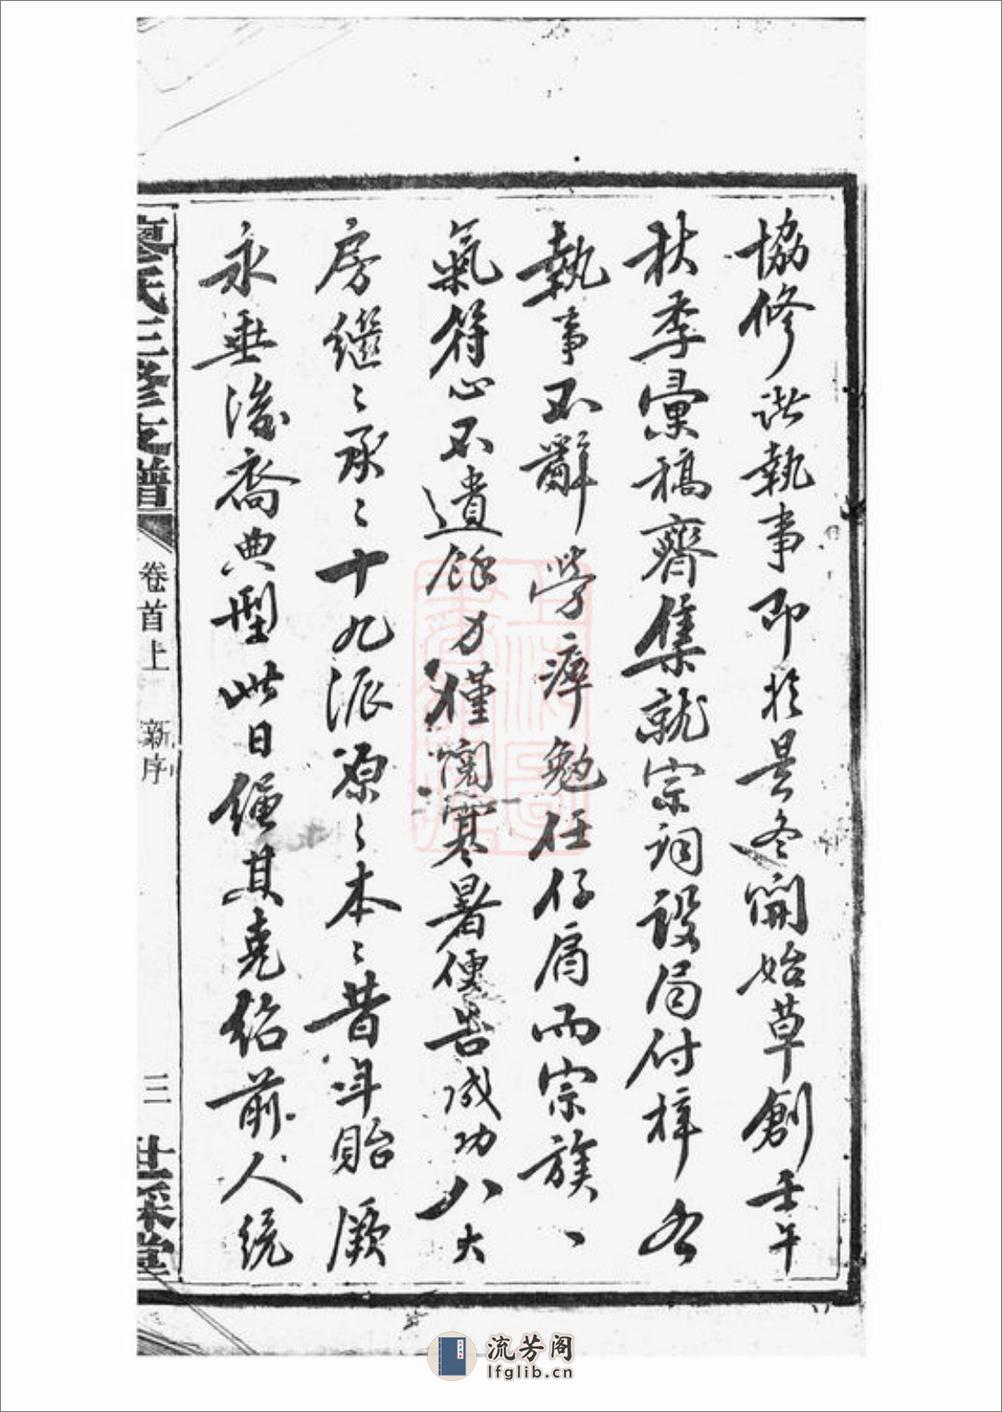 協修諸執事即於是冬開始草創壬午
秋季彙稿齊集就宗祠設局付梓各
執事不辭勞瘁勉任仔肩而宗族一
氣符心不遺餘力僅閱寒暑便告成功八大
房繼〻承〻十九派源〻本〻昔年貽厥
永垂後裔典型此日繩其克紹前人統
廖氏三修支譜
卷首上
新序
三
世綵堂
流芳阁
lfglib.cn